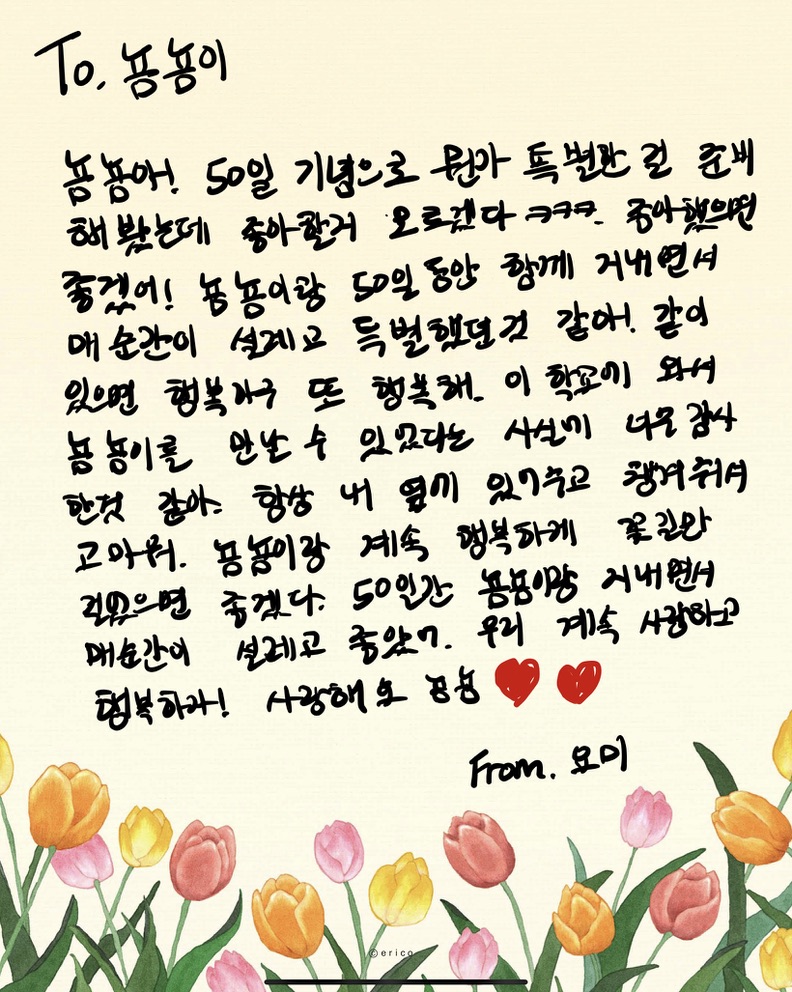 To. 뇸뇸이
뇸뇸아! 50일 기념으로 뭔가 특별한 걸 준비
해봤는데 좋아할거 모르겠다 ㅋㅋㅋ. 좋아했으면
좋겠어! 뇸뇸이랑 50일동안 함께 지내면서
매 순간이 설레고 특별했던것 같아! 같이
있으면 행복하구 또 행복해. 이 학교에 와서
뇸뇸이를 만날 수 있었다는 사실이 너무 감사
한것 같아. 항상 내 옆에 있어주고 챙겨줘서
고마워. 뇸뇸이랑 계속 행복하게 꽃길만
걸었으면 좋겠다. 50일간 뇸뇸이랑 지내면서
매순간이 설레고 좋았어. 우리 계속 사랑하고
행복하자! 사랑해요 뇸뇸
From. 묘미
©erico